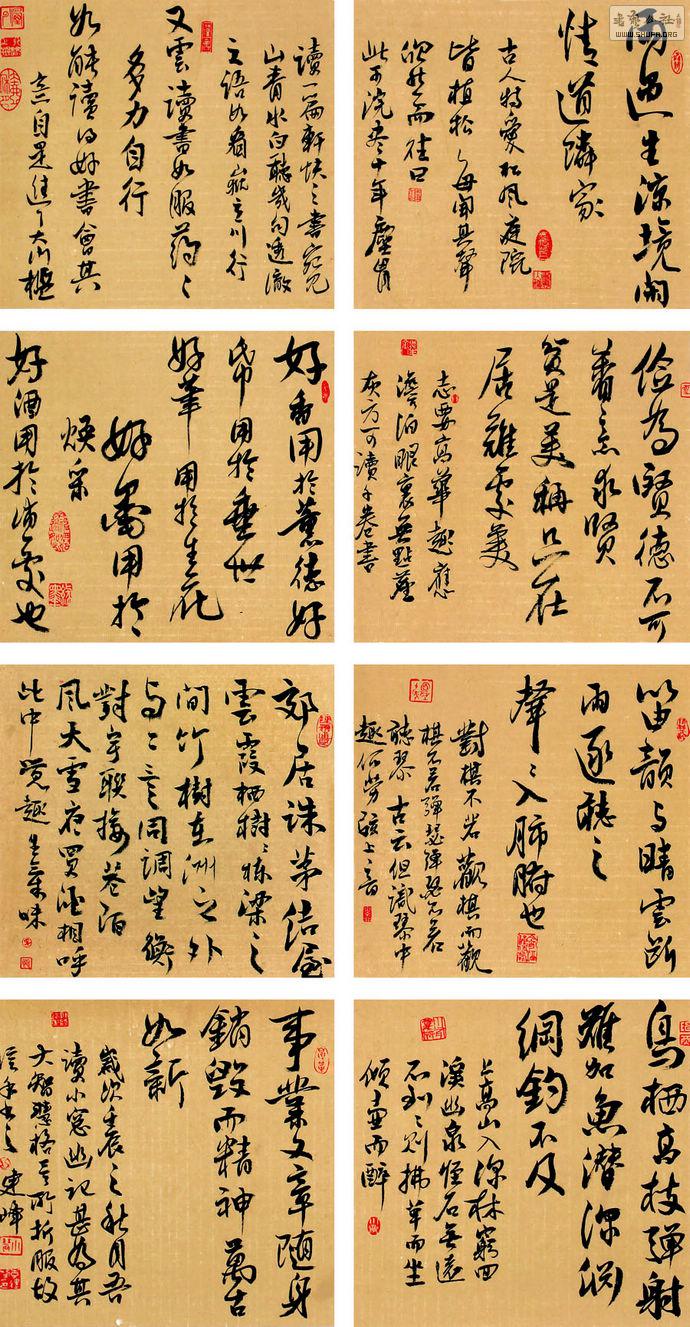 书法公社
WWW.SHUFA.ORG
雨過生涼境閒
情適隣家
古人特愛松風庭院
皆植松々每聞其聲
欣然而往曰
此可浣盡十年塵胃
讀一篇軒快之書宛見
山青水白聽幾句透徹
之語如看嶽立川行
又雲讀書如服藥々
多力自行
如能讀得好書會其
意自是進
儉為賢德不可
著意求賢
貧是美稱只在
居難處美
志要高華趣應
澹泊眼裏無點塵
灰方可讀千卷書
好香用於薰德好
帋用於垂世
好筆用於生花
好墨用於
煥采
好酒用於消憂也
笛韻与晴雲斷
雨逐聽之
聲々入肺腑也
對棋不若觀棋而觀
棋不若彈瑟彈瑟不若
聽琴古云但識琴中
趣何勞弦上之音
郊居誅茅結屋
雲霞栖樹々棟梁之
間竹樹在洲之外
与二三之同調望衡
對宇聯接巷陌
風天雪夜買酒相呼
此中覺趣生氣味
鳥栖高枝彈射
難加魚潛深淵
網鈎不及
上高山入深林窮回
溪幽泉怪石無遠
不到々則拂草而坐
傾壺而醉
事業文章隨身
銷毀而精神萬古
如新
歲次壬辰之秋月吾
讀小窓幽記甚為其
大智慧格言所折服故
信手書之東峰